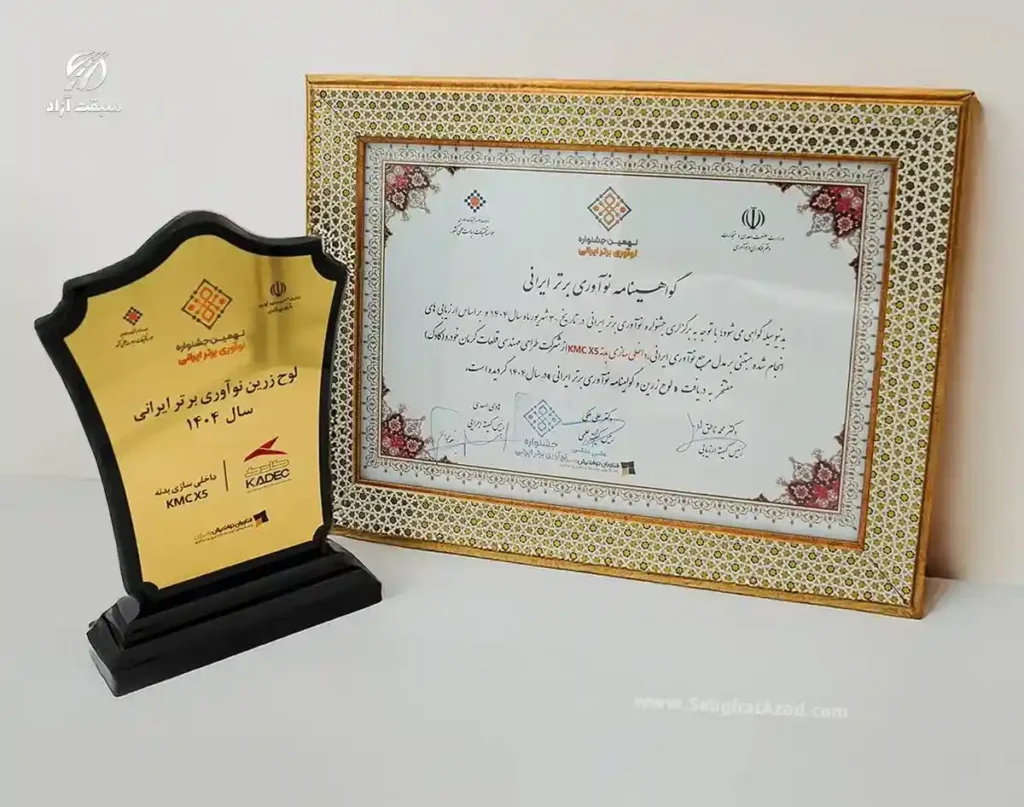 سبقت آزاد
نهمین جشنواره
نوآوری برتر ایرانی
لوح زرین نوآوری برتر ایرانی
سال ۱۴۰۴
KADEC
داخلی سازی بدنه
KMC X5
وزارت صنعت، معدن و تجارت
نهمین جشنواره
نوآوری برتر ایرانی
گواهینامه نوآوری برتر ایرانی
بدینوسیله گواهی می شود: با توجه به برگزاری جشنواره نوآوری برتر ایرانی در تاریخ ۳۰ شهریورماه سال ۱۴۰۴ و بر اساس ارزیابی های
انجام شده مبتنی بر مدل مرجع نوآوری ایرانی، داخلی سازی بدنه KMC X5 از شرکت طراحی مهندسی قطعات کرمان خودرو (کادک)
مفتخر به دریافت « لوح زرین و گواهینامه نوآوری برتر ایرانی » در سال ۱۴۰۴ گردیده است.
رئیس کمیته ارزیابی
رئیس کمیته علمی
هادی اسدی
رئیس کمیته اجرایی
جشنواره
نوآوری برتر ایرانی
www.SebghatAzad.com